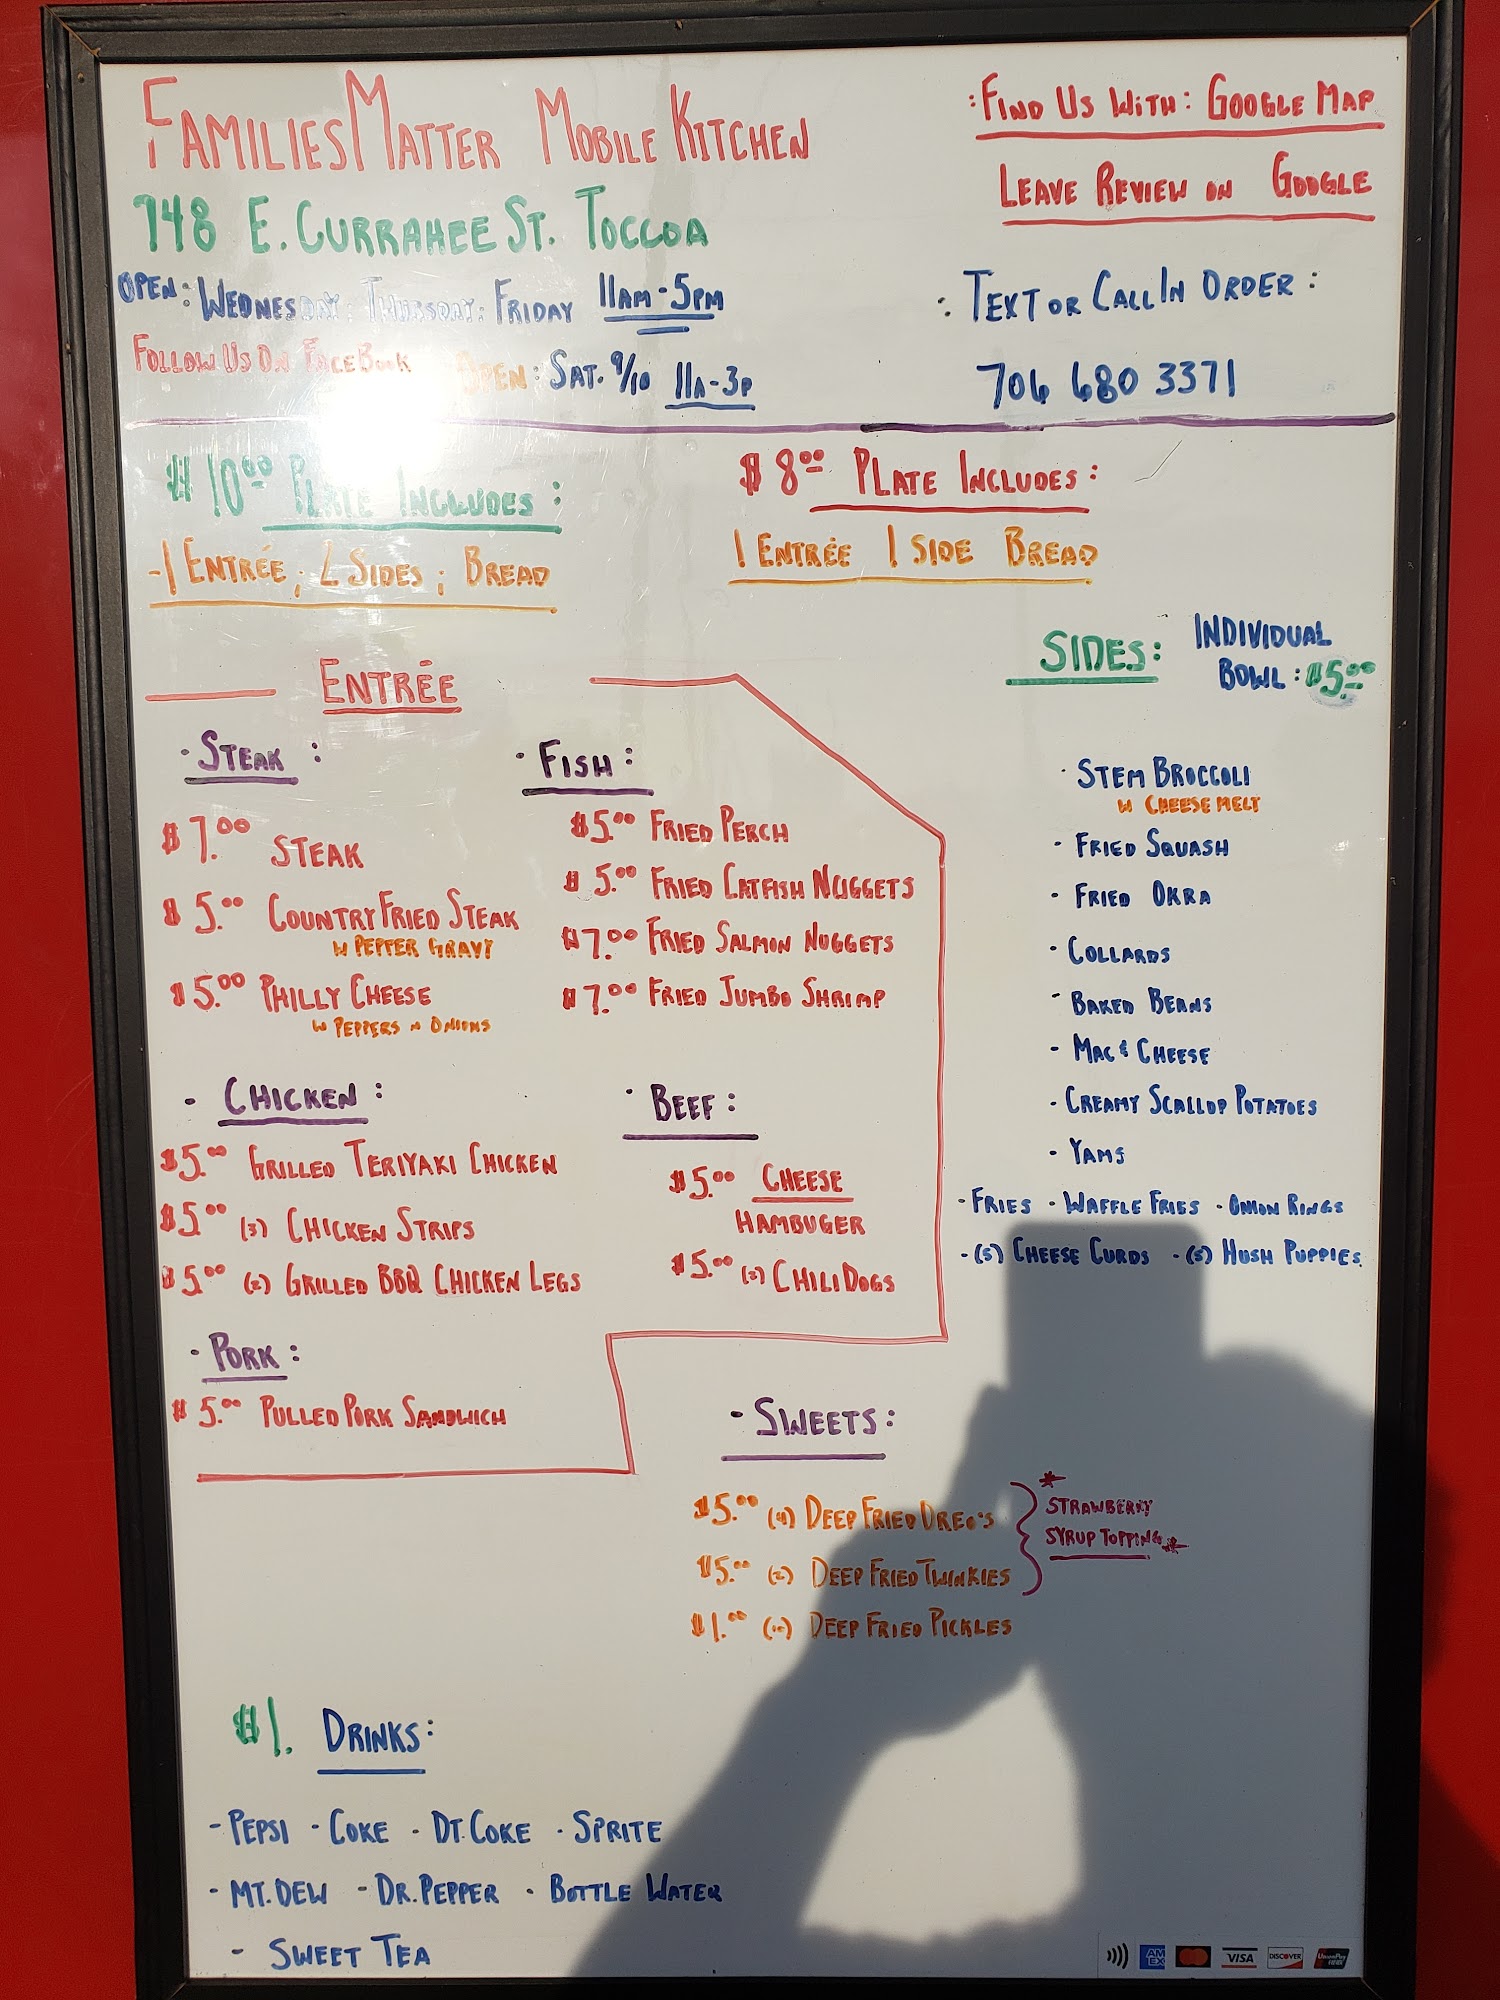 FAMILIES MATTER MOBILE KITCHEN
748 E. CURRAHEE ST. TOCCOA
OPEN: WEDNESDAY: THURSDAY: FRIDAY 11AM-5PM
FOLLOW US ON FACEBOOK OPEN: SAT. 9/10 11A-3P
:FIND US WITH: GOOGLE MAP
LEAVE REVIEW ON GOOGLE
: TEXT OR CALL IN ORDER:
706 680 3371
$10.00 PLATE INCLUDES:
-1 ENTRÉE; 2 SIDES; BREAD
$8.00 PLATE INCLUDES:
1 ENTRÉE 1 SIDE BREAD
ENTRÉE
· STEAK:
$7.00 STEAK
$5.00 COUNTRY FRIED STEAK
W PEPPER GRAVY
$5.00 PHILLY CHEESE
W PEPPERS N ONIONS
· FISH:
$5.00 FRIED PERCH
$5.00 FRIED CATFISH NUGGETS
$7.00 FRIED SALMON NUGGETS
$7.00 FRIED JUMBO SHRIMP
- CHICKEN:
$5.00 GRILLED TERIYAKI CHICKEN
$5.00 (3) CHICKEN STRIPS
$5.00 (2) GRILLED BBQ CHICKEN LEGS
· BEEF:
$5.00 CHEESE
HAMBUGER
$5.00 (2) CHILI DOGS
· PORK:
$5.00 PULLED PORK SANDWICH
SIDES: INDIVIDUAL
BOWL: $5.00
· STEM BROCCOLI
W CHEESE MELT
- FRIED SQUASH
- FRIED OKRA
- COLLARDS
- BAKED BEANS
- MAC & CHEESE
- CREAMY SCALLOP POTATOES
- YAMS
- FRIES - WAFFLE FRIES - ONION RINGS
- (5) CHEESE CURDS - (5) HUSH PUPPIES
- SWEETS:
$5.00 (4) DEEP FRIED OREO'S
$5.00 (2) DEEP FRIED TWINKIES
$1.00 DEEP FRIED PICKLES
* STRAWBERRY
SYRUP TOPPING *
$1. DRINKS:
- PEPSI - COKE - DT. COKE - SPRITE
- MT. DEW - DR. PEPPER - BOTTLE WATER
- SWEET TEA
AMEX VISA DISCOVER UnionPay